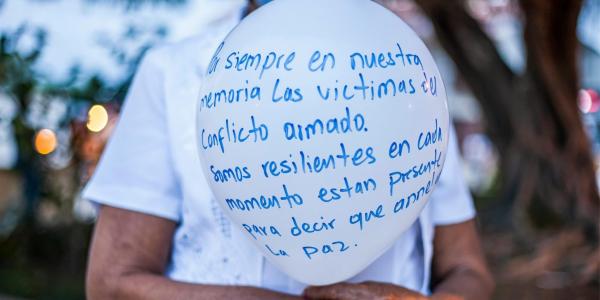 Por siempre en nuestra
memoria Las victimas del
conflicto armado.
somos resilientes en cada
momento estan presente
para decir que
La paz.